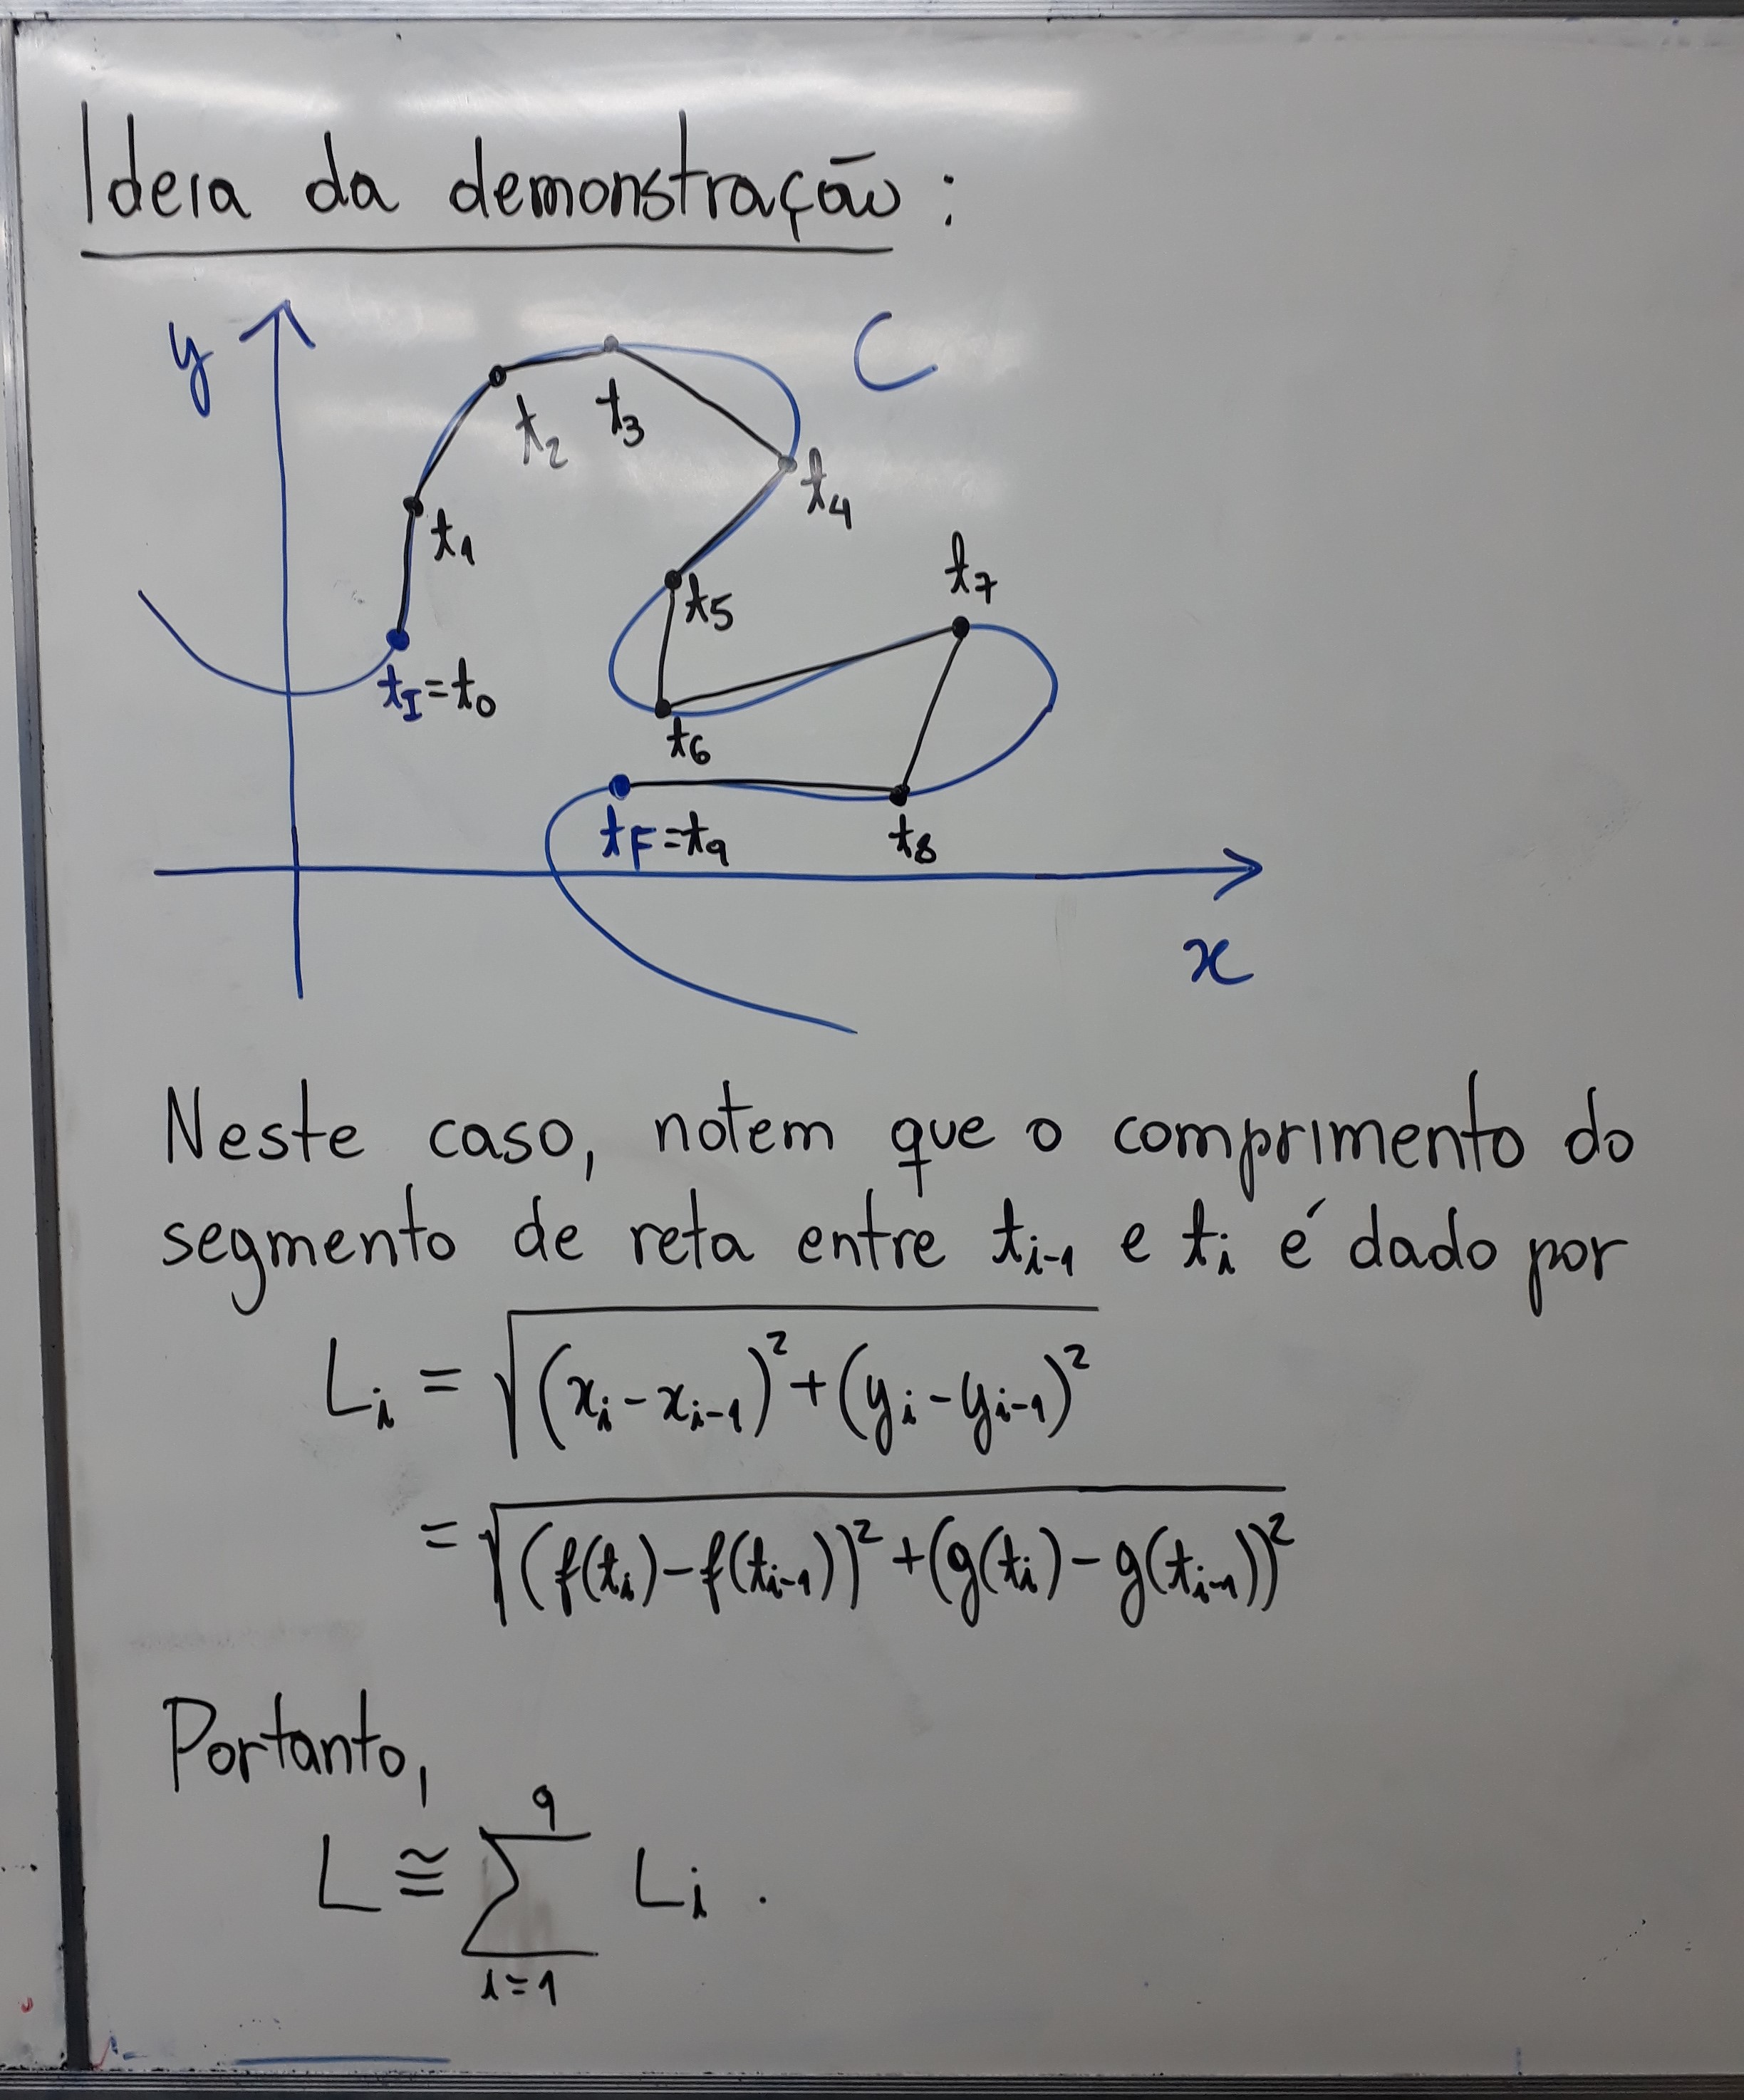 Ideia da demonstração:
y
C
t₂
t₃
t₄
t₁
t₇
t₅
t_I=t₀
t₆
t_F=t₉
t₈
x
Neste caso, notem que o comprimento do
segmento de reta entre t_{i-1} e t_i é dado por
L_i = √((x_i-x_{i-1})²+(y_i-y_{i-1})²)
= √((f(t_i)-f(t_{i-1}))²+(g(t_i)-g(t_{i-1}))²)
Portanto,
L ≅ ∑_{i=1}^{9} L_i .